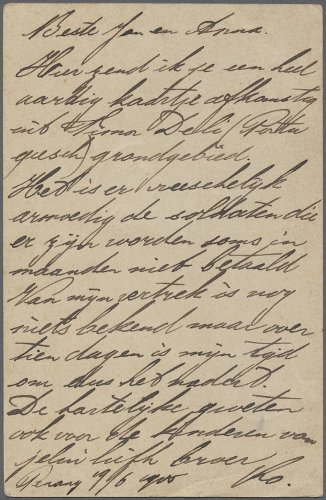 Beste Jan en Anna.
Hier zend ik je een heel
aardig kaartje afkomstig
uit Timor Delli (Portu
geesch) grondgebied.
Het is er vreeschelijk
armoedig de soldaten die
er zijn worden soms in
maanden niet betaald
Van mijn vertrek is nog
niets bekend maar over
tien dagen is mijn tijd
om dus het nadert.
De hartelijke groeten
ook voor de kinderen van
jelui liefh broer
19/6 900 Ko.